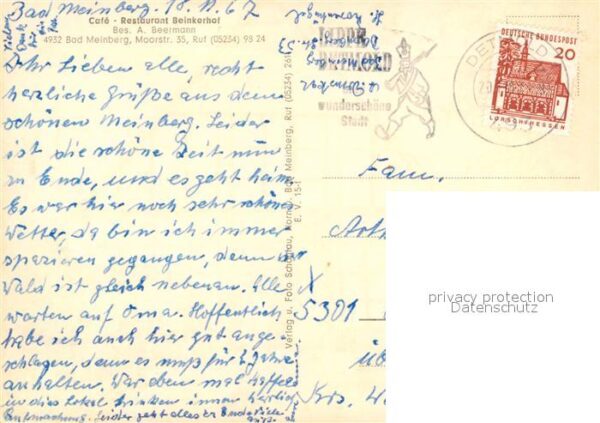 Bad Meinberg, 18. 11. 67
Café - Restaurant Beinkerhof
Bes. A. Beermann
4932 Bad Meinberg, Moorstr. 35, Ruf (05234) 98 24
Vielen
Dank
für die
Ihr Lieben alle, recht
herzliche Grüße aus dem
schönen Meinberg. Leider
ist die schöne Zeit nun
zu Ende, und es geht heim.
Es war hier noch sehr schönes
Wetter, da bin ich immer
spazieren gegangen, denn der
Wald ist gleich nebenan. Alle
warten auf Oma. Hoffentlich
habe ich auch hier gut ange-
schlagen, denn es muß für 2 Jahre
anhalten. War eben mal Kaffee
in dies Lokal trinken, innen herrlich
Aufmachung. Leider geht alles zu Ende. Viele
Verlag u. Foto Schötlau, Horn-Bad Meinberg, Ruf (05234) 269
E. V. 15-1
DETMOLD
wunderschöne
Stadt
DETMOLD
493
DEUTSCHE BUNDESPOST
20
LORSCH/HESSEN
Fam.
5301
Krs.
privacy protection
Datenschutz